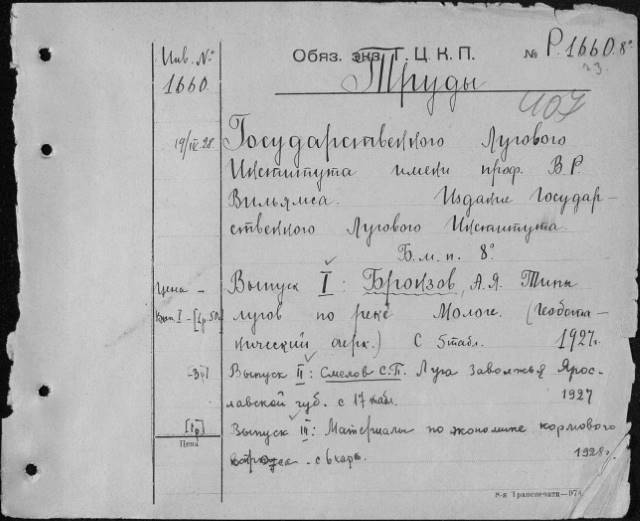 Инв. №
1660.
Обяз. экз. Г. Ц. К. П. № Р.1660.8°
23.
Труды
407
19/IV 28. Государственного Лугового
Института имени проф. В.Р.
Вильямса. Издание Государ-
ственного Лугового Института.
Б.м.п. 8°
Цена – Выпуск I: Бронзов, А.Я. Типы
Вып I – [1р 50к] лугов по реке Мологе. (Геобота-
нический очерк.) С 5 табл. 1927г.
Выпуск II: Смелов С.П. Луга Заволжья Ярос-
лавской губ. с 17 табл. 1927
[1р] Выпуск III: Материалы по экономике кормового
Цена
с 6 карт. 1928г.
8-я Транспечати—974